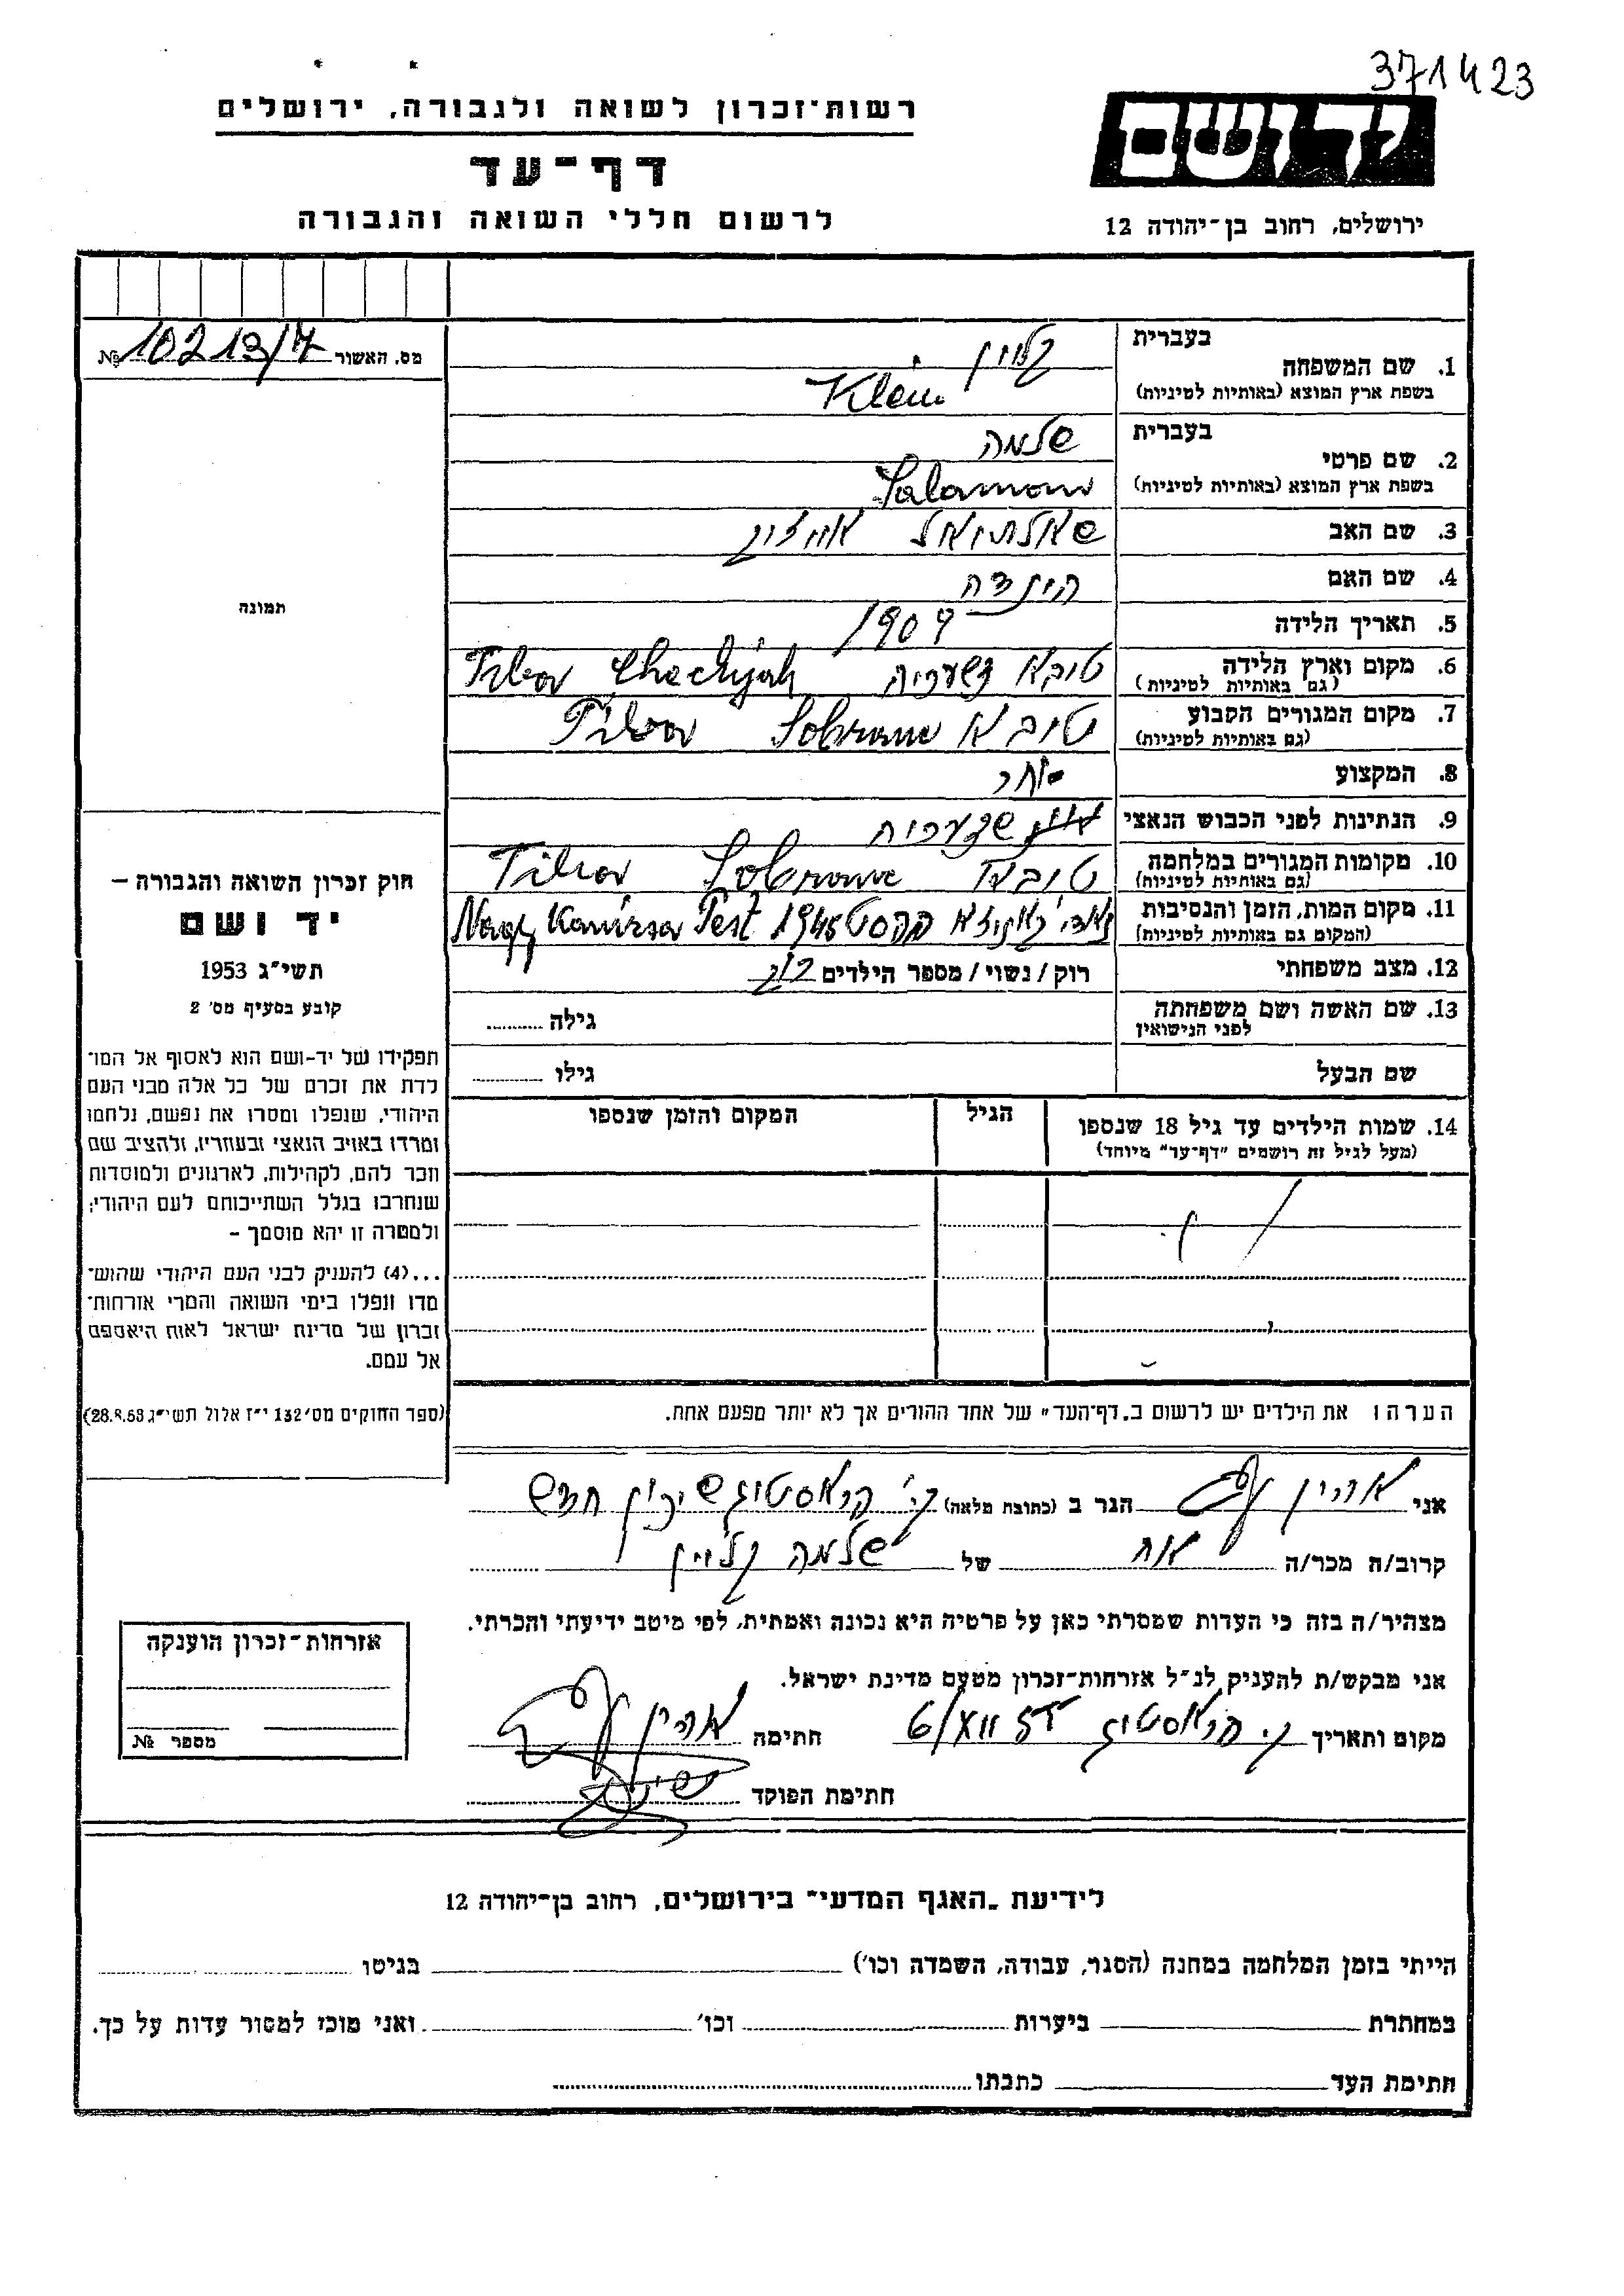 371423
רשות־זכרון לשואה ולגבורה, ירושלים
יד ושם
דף־עד
לרשום חללי השואה והגבורה
ירושלים, רחוב בן־יהודה 12
מס. האשור № 10213/17
בעברית קליין
1. שם המשפחה
בשפת ארץ המוצא (באותיות לטיניות) Klein
בעברית שלמה
2. שם פרטי
בשפת ארץ המוצא (באותיות לטיניות) Salamon
3. שם האב שאלתיאל
4. שם האם הינדה
5. תאריך הלידה 1909
6. מקום וארץ הלידה
(גם באותיות לטיניות)
7. מקום המגורים הקבוע
(גם באותיות לטיניות)
8. המקצוע
9. הנתינות לפני הכבוש הנאצי
10. מקומות המגורים במלחמה
(גם באותיות לטיניות)
11. מקום המות, הזמן והנסיבות 1945 Nagy Kanizsa Pest
(המקום גם באותיות לטיניות)
12. מצב משפחתי רוק / נשוי / מספר הילדים
13. שם האשה ושם משפחתה גילה
לפני הנישואין
שם הבעל גילו
14. שמות הילדים עד גיל 18 שנספו הגיל המקום והזמן שנספו
(מעל לגיל זה רושמים "דף־עד" מיוחד)
תמונה
חוק זכרון השואה והגבורה –
יד ושם
תשי"ג 1953
קובע בסעיף מס' 2
תפקידו של יד-ושם הוא לאסוף אל המו־
לדת את זכרם של כל אלה מבני העם
היהודי, שנפלו ומסרו את נפשם, נלחמו
ומרדו באויב הנאצי ובעוזריו, ולהציב שם
וזכר להם, לקהילות, לארגונים ולמוסדות
שנחרבו בגלל השתייכותם לעם היהודי;
ולמטרה זו יהא מוסמך –
...(4) להעניק לבני העם היהודי שהוש־
מדו ונפלו בימי השואה והמרי אזרחות־
זכרון של מדינת ישראל לאות היאספם
אל עמם.
(ספר החוקים מס' 132 י"ז אלול תשי"ג 28.8.53)
הערה: את הילדים יש לרשום ב„דף־העד" של אחד ההורים אך לא יותר מפעם אחת.
אני אהרון הגר ב (כתובת מלאה)
קרוב/ה מכר/ה אח של שלמה קליין
מצהיר/ה בזה כי העדות שמסרתי כאן על פרטיה היא נכונה ואמתית, לפי מיטב ידיעתי והכרתי.
אני מבקש/ת להעניק לנ"ל אזרחות־זכרון מטעם מדינת ישראל.
מקום ותאריך חתימה אהרון
חתימת הפוקד
אזרחות־זכרון הוענקה
מספר №
לידיעת „האגף המדעי" בירושלים, רחוב בן־יהודה 12
הייתי בזמן המלחמה במחנה (הסגר, עבודה, השמדה וכו') בגיטו
במחתרת ביערות וכו' ואני מוכן למסור עדות על כך.
חתימת העד כתבתו